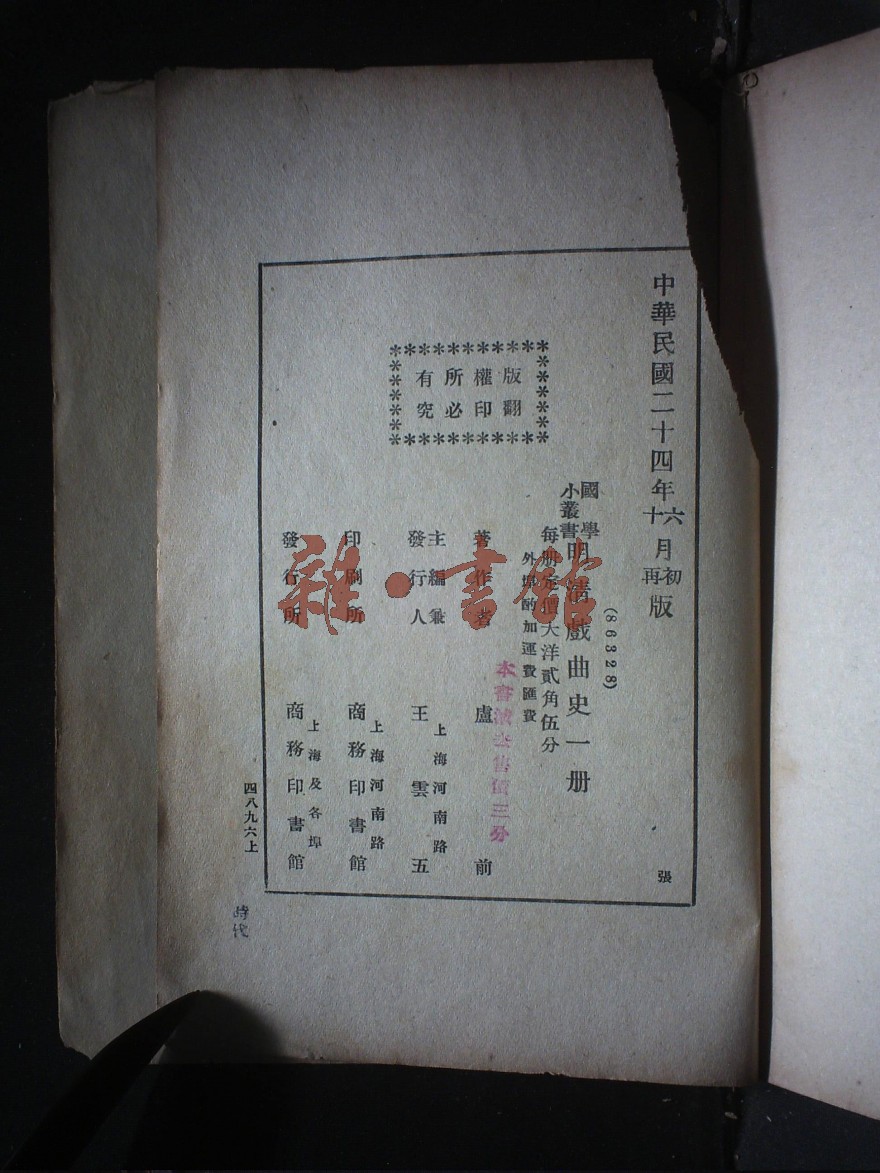 中華民國二十四年六月初版
十月再版
(86328)
國學小叢書 明清戲曲史一册
每册定價大洋貳角伍分
外埠酌加運費匯費
版權所有
翻印必究
著作者 盧前
主編兼發行人 王雲五
上海河南路
印刷所 商務印書館
上海河南路
發行所 商務印書館
上海及各埠
張
四八九六上
時代
雜·書館